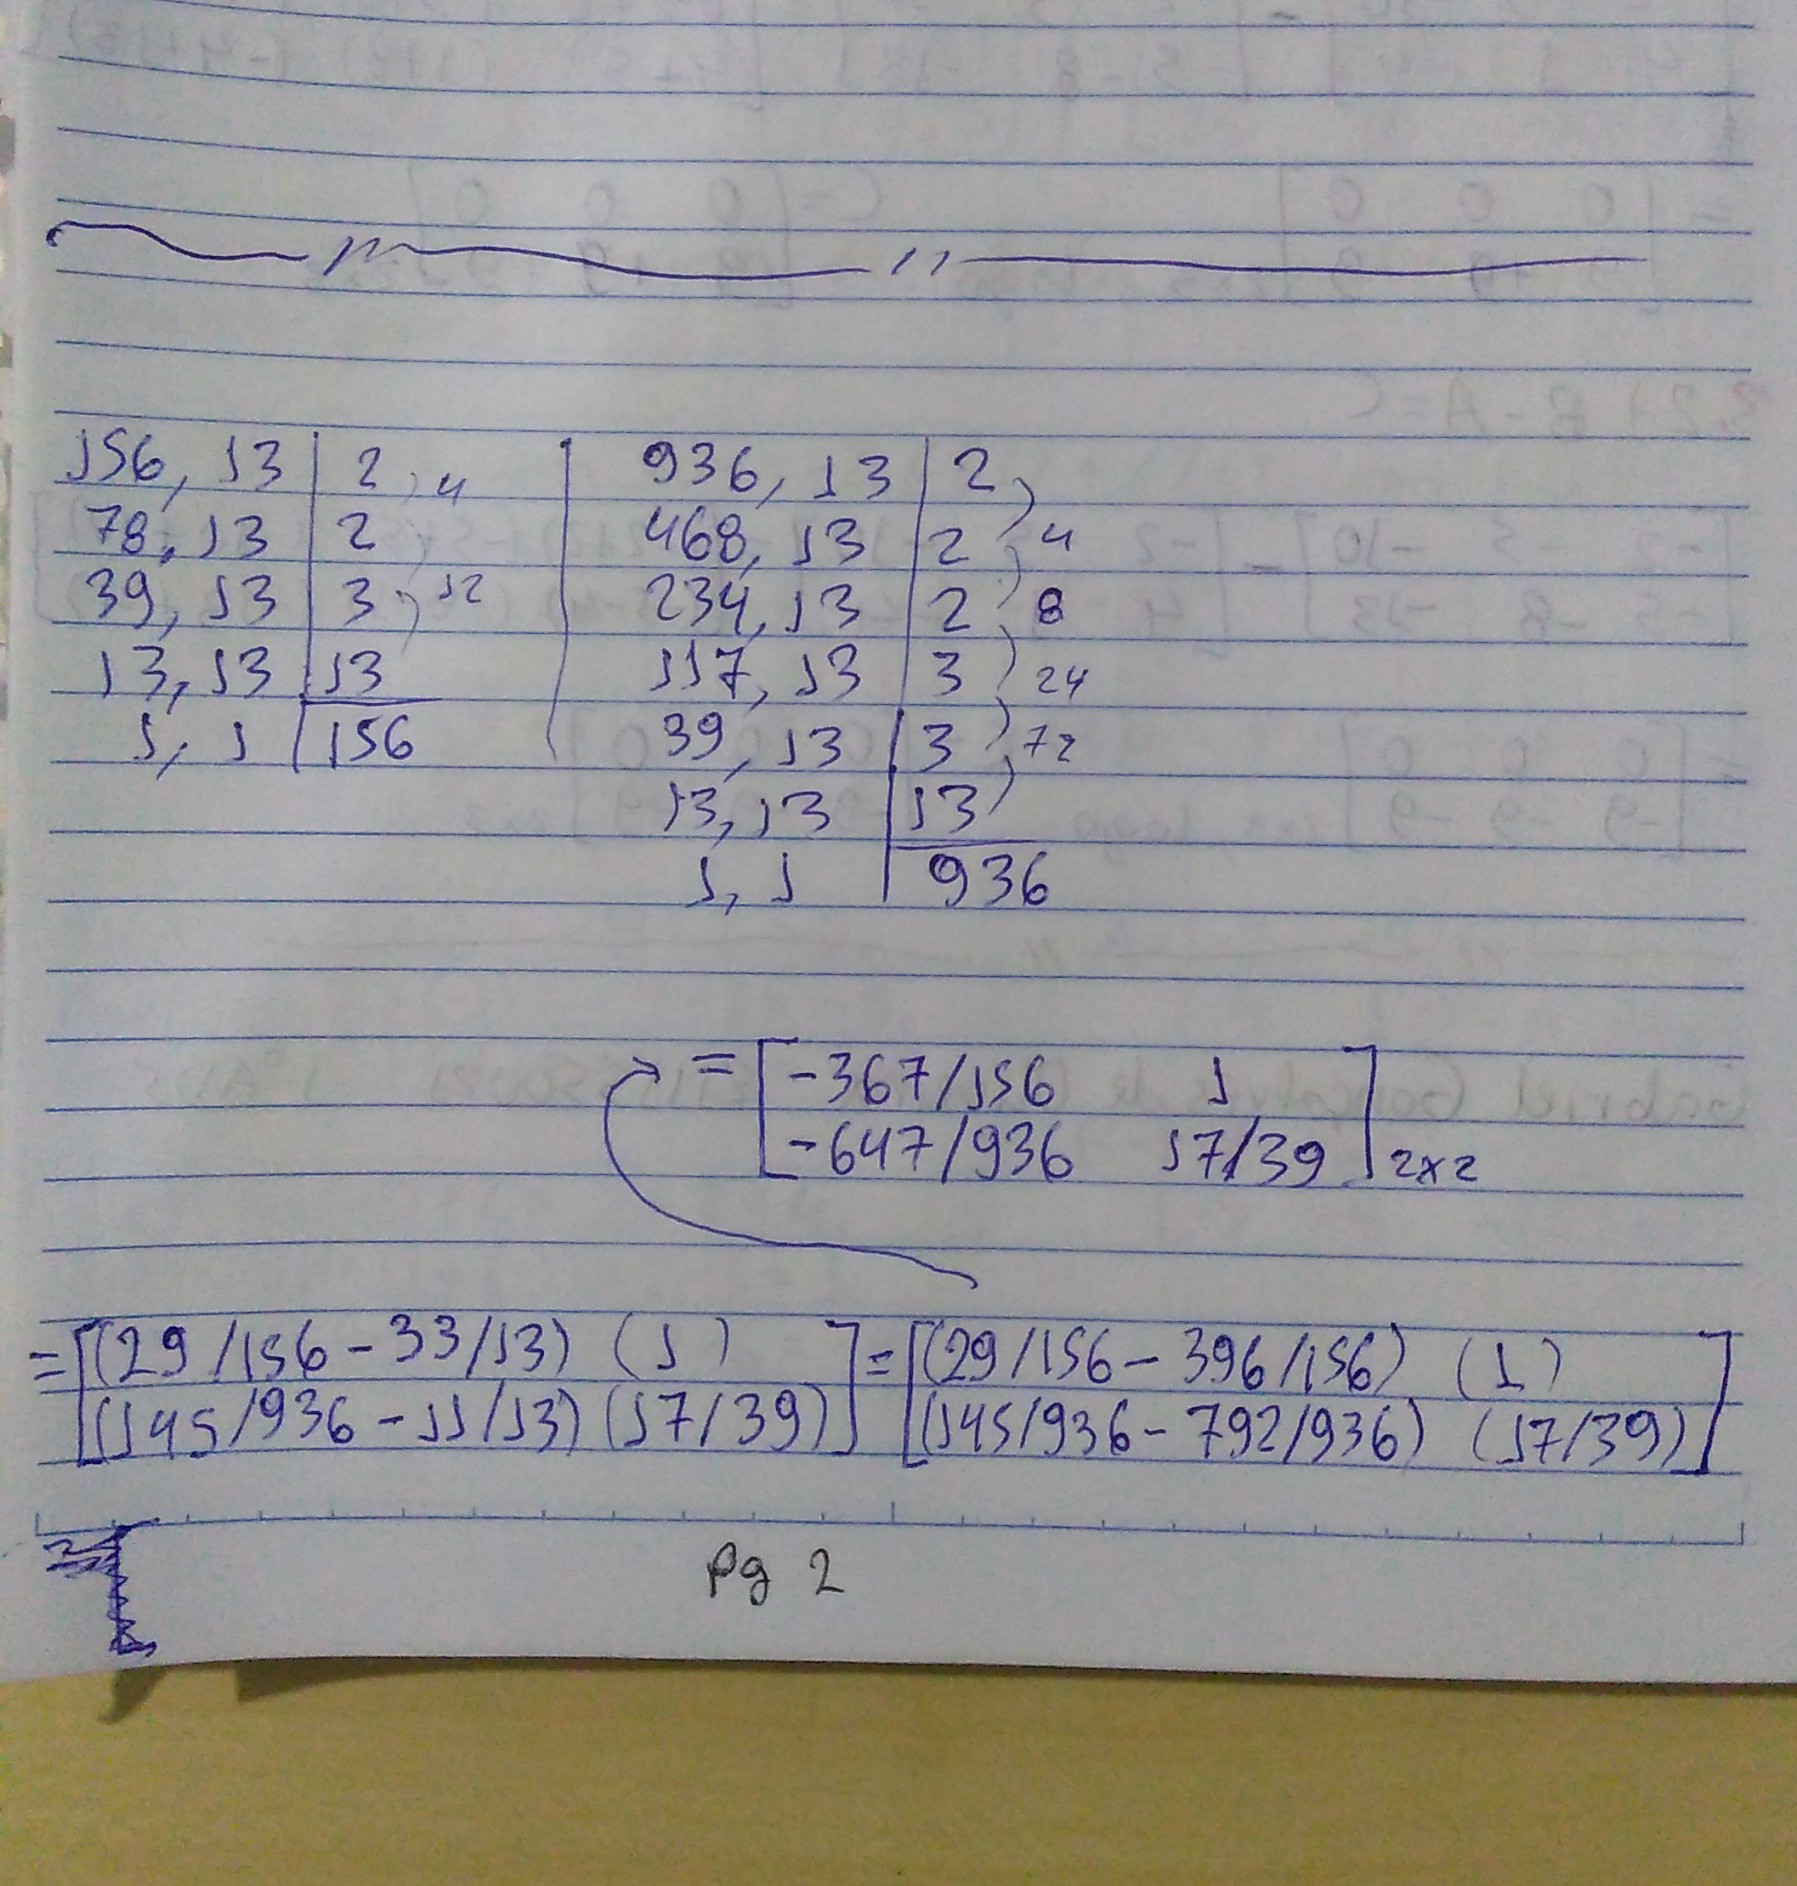 156, 13 | 2 4
78, 13 | 2
39, 13 | 3 12
13, 13 | 13
1, 1 | 156
936, 13 | 2
468, 13 | 2 4
234, 13 | 2 8
117, 13 | 3 24
39, 13 | 3 72
13, 13 | 13
1, 1 | 936
= [-367/156 1
-647/936 17/39] 2x2
= [(29/156 - 33/13) (1)
(145/936 - 11/13) (17/39)]
= [(29/156 - 396/156) (1)
(145/936 - 792/936) (17/39)]
Pg 2